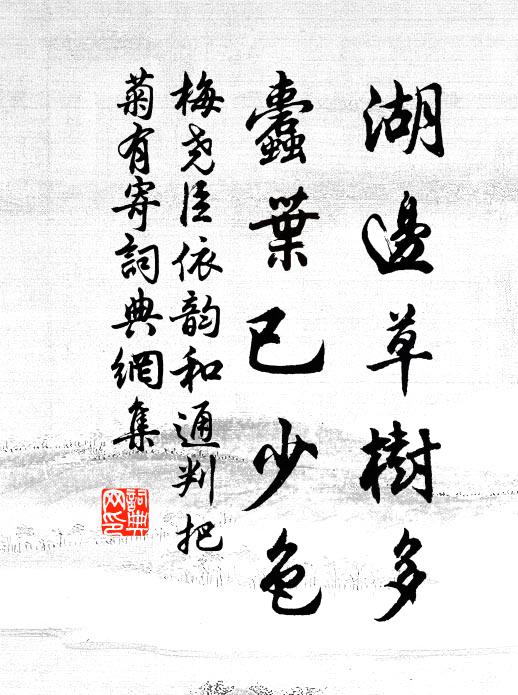 湖邊草樹多
蠹葉已少色
梅堯臣依韵和通判把
菊有寄詞典網集
詞典
网印